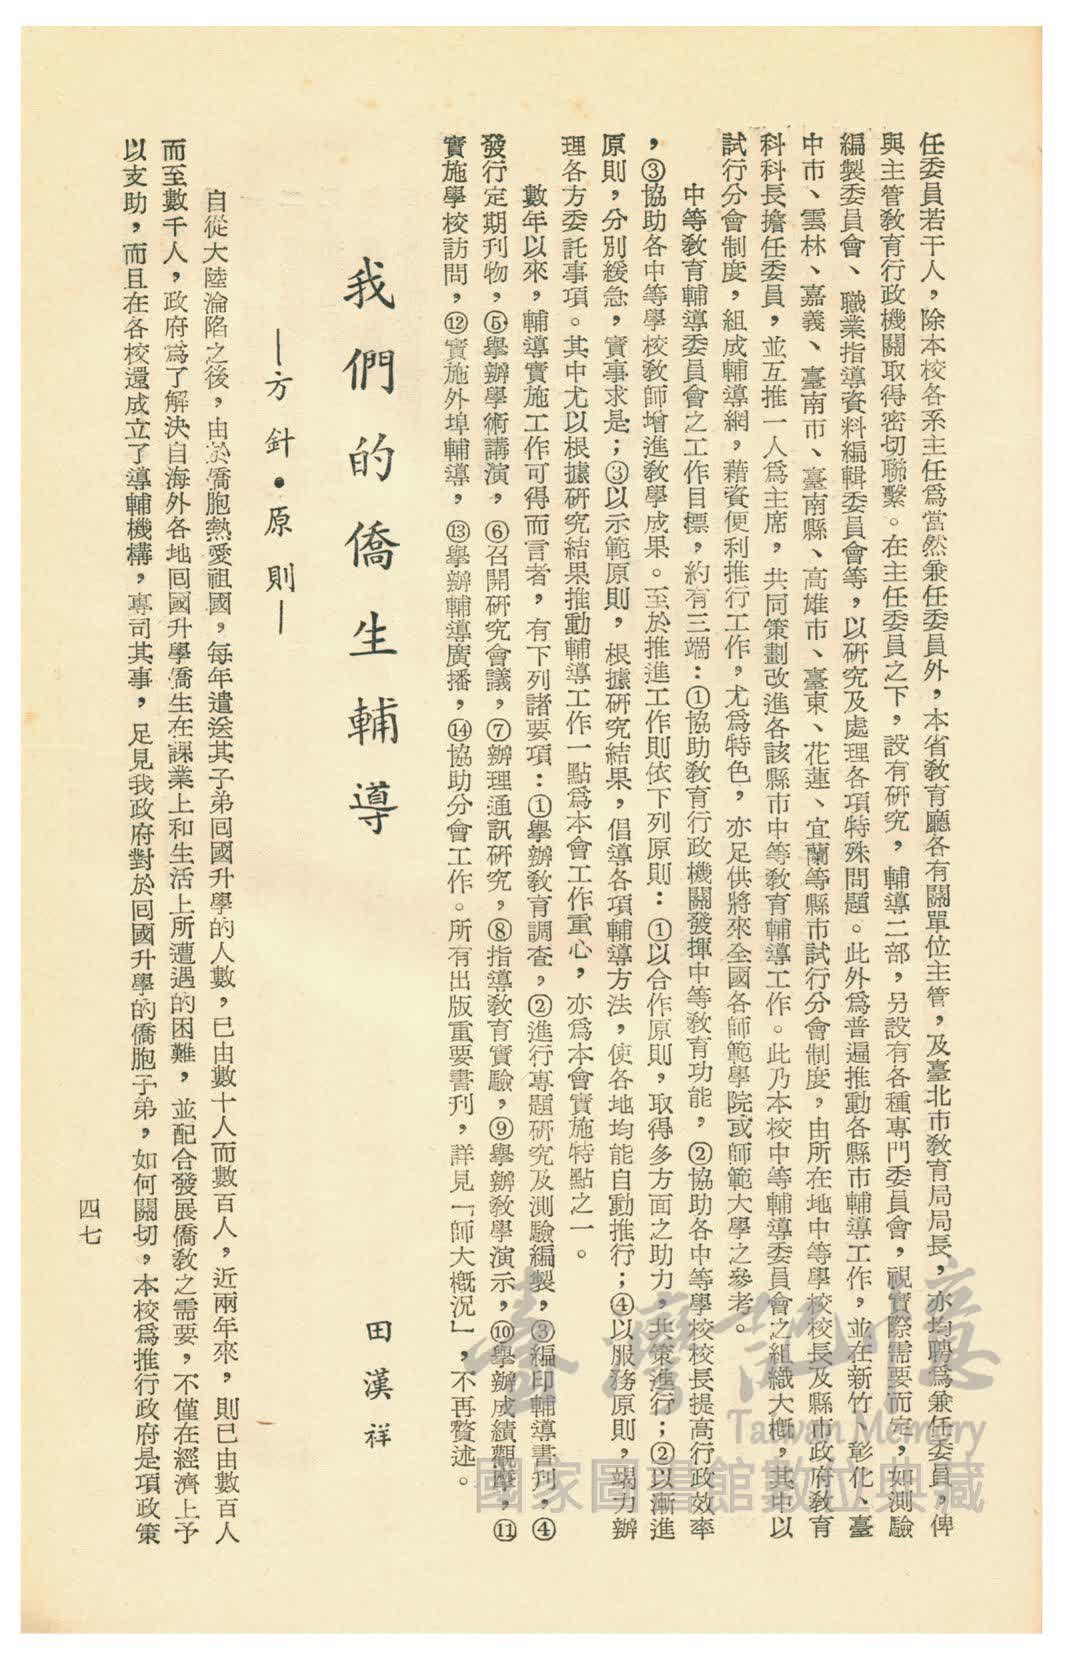 任委員若干人，除本校各系主任爲當然兼任委員外，本省敎育廳各有關單位主管，及臺北市敎育局局長，亦均聘爲兼任委員，俾
與主管敎育行政機關取得密切聯繫。在主任委員之下，設有硏究，輔導二部，另設有各種專門委員會，視實際需要而定，如測驗
編製委員會、職業指導資料編輯委員會等，以硏究及處理各項特殊問題。此外爲普遍推動各縣市輔導工作，並在新竹、彰化、臺
中市、雲林、嘉義、臺南市、臺南縣、高雄市、臺東、花蓮、宜蘭等縣市試行分會制度，由所在地中等學校校長及縣市政府敎育
科科長擔任委員，並互推一人爲主席，共同策劃改進各該縣市中等敎育輔導工作。此乃本校中等輔導委員會之組織大槪，其中以
試行分會制度，組成輔導網，藉資便利推行工作，尤爲特色，亦足供將來全國各師範學院或師範大學之參考。
中等敎育輔導委員會之工作目標，約有三端：①協助敎育行政機關發揮中等敎育功能，②協助各中等學校校長提高行政效率
，③協助各中等學校敎師增進敎學成果。至於推進工作則依下列原則：①以合作原則，取得多方面之助力，共策進行；②以漸進
原則，分別緩急，實事求是；③以示範原則，根據硏究結果，倡導各項輔導方法，使各地均能自動推行；④以服務原則，竭力辦
理各方委託事項。其中尤以根據硏究結果推動輔導工作一點爲本會工作重心，亦爲本會實施特點之一。
數年以來，輔導實施工作可得而言者，有下列諸要項：①擧辦敎育調查，②進行專題硏究及測驗編製，③編印輔導書刊，④
發行定期刊物，⑤擧辦學術講演，⑥召開硏究會議，⑦辦理通訊硏究，⑧指導敎育實驗，⑨擧辦敎學演示，⑩擧辦成績觀摩，⑪
實施學校訪問，⑫實施外埠輔導，⑬擧辦輔導廣播，⑭協助分會工作。所有出版重要書刊，詳見「師大槪況」，不再贅述。
我們的僑生輔導
田漢祥
—方針•原則—
自從大陸淪陷之後，由於僑胞熱愛祖國，每年遣送其子弟囘國升學的人數，已由數十人而數百人，近兩年來，則已由數百人
而至數千人，政府爲了解決自海外各地囘國升學僑生在課業上和生活上所遭遇的困難，並配合發展僑敎之需要，不僅在經濟上予
以支助，而且在各校還成立了導輔機構，專司其事，足見我政府對於囘國升學的僑胞子弟，如何關切，本校爲推行政府是項政策
四七
臺灣記憶
Taiwan Memory
國家圖書館數位典藏